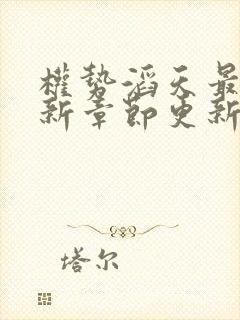 權勢滔天最
新章節更新
塔尔